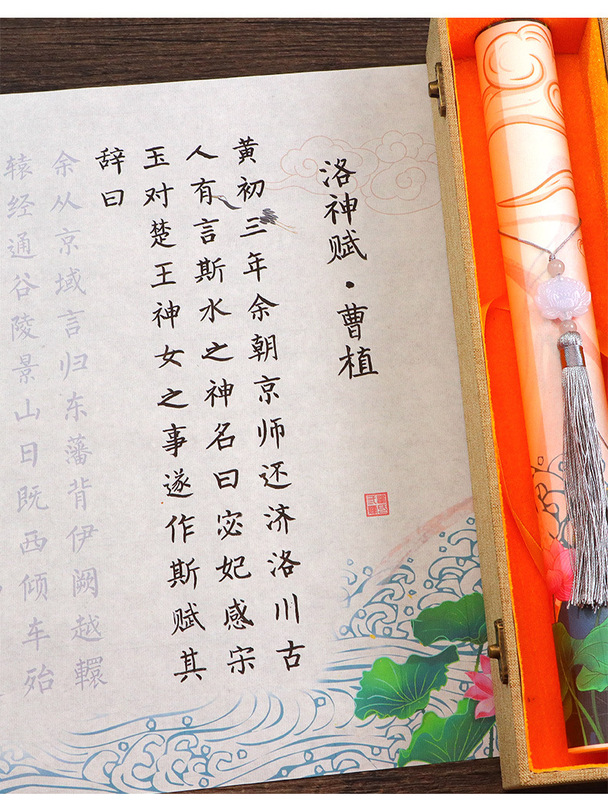 洛神赋·曹植
黄初三年余朝京师还济洛川古
人有言斯水之神名曰宓妃感宋
玉对楚王神女之事遂作斯赋其
辞曰
余从京域言归东藩背伊阙越轘
辕经通谷陵景山日既西倾车殆